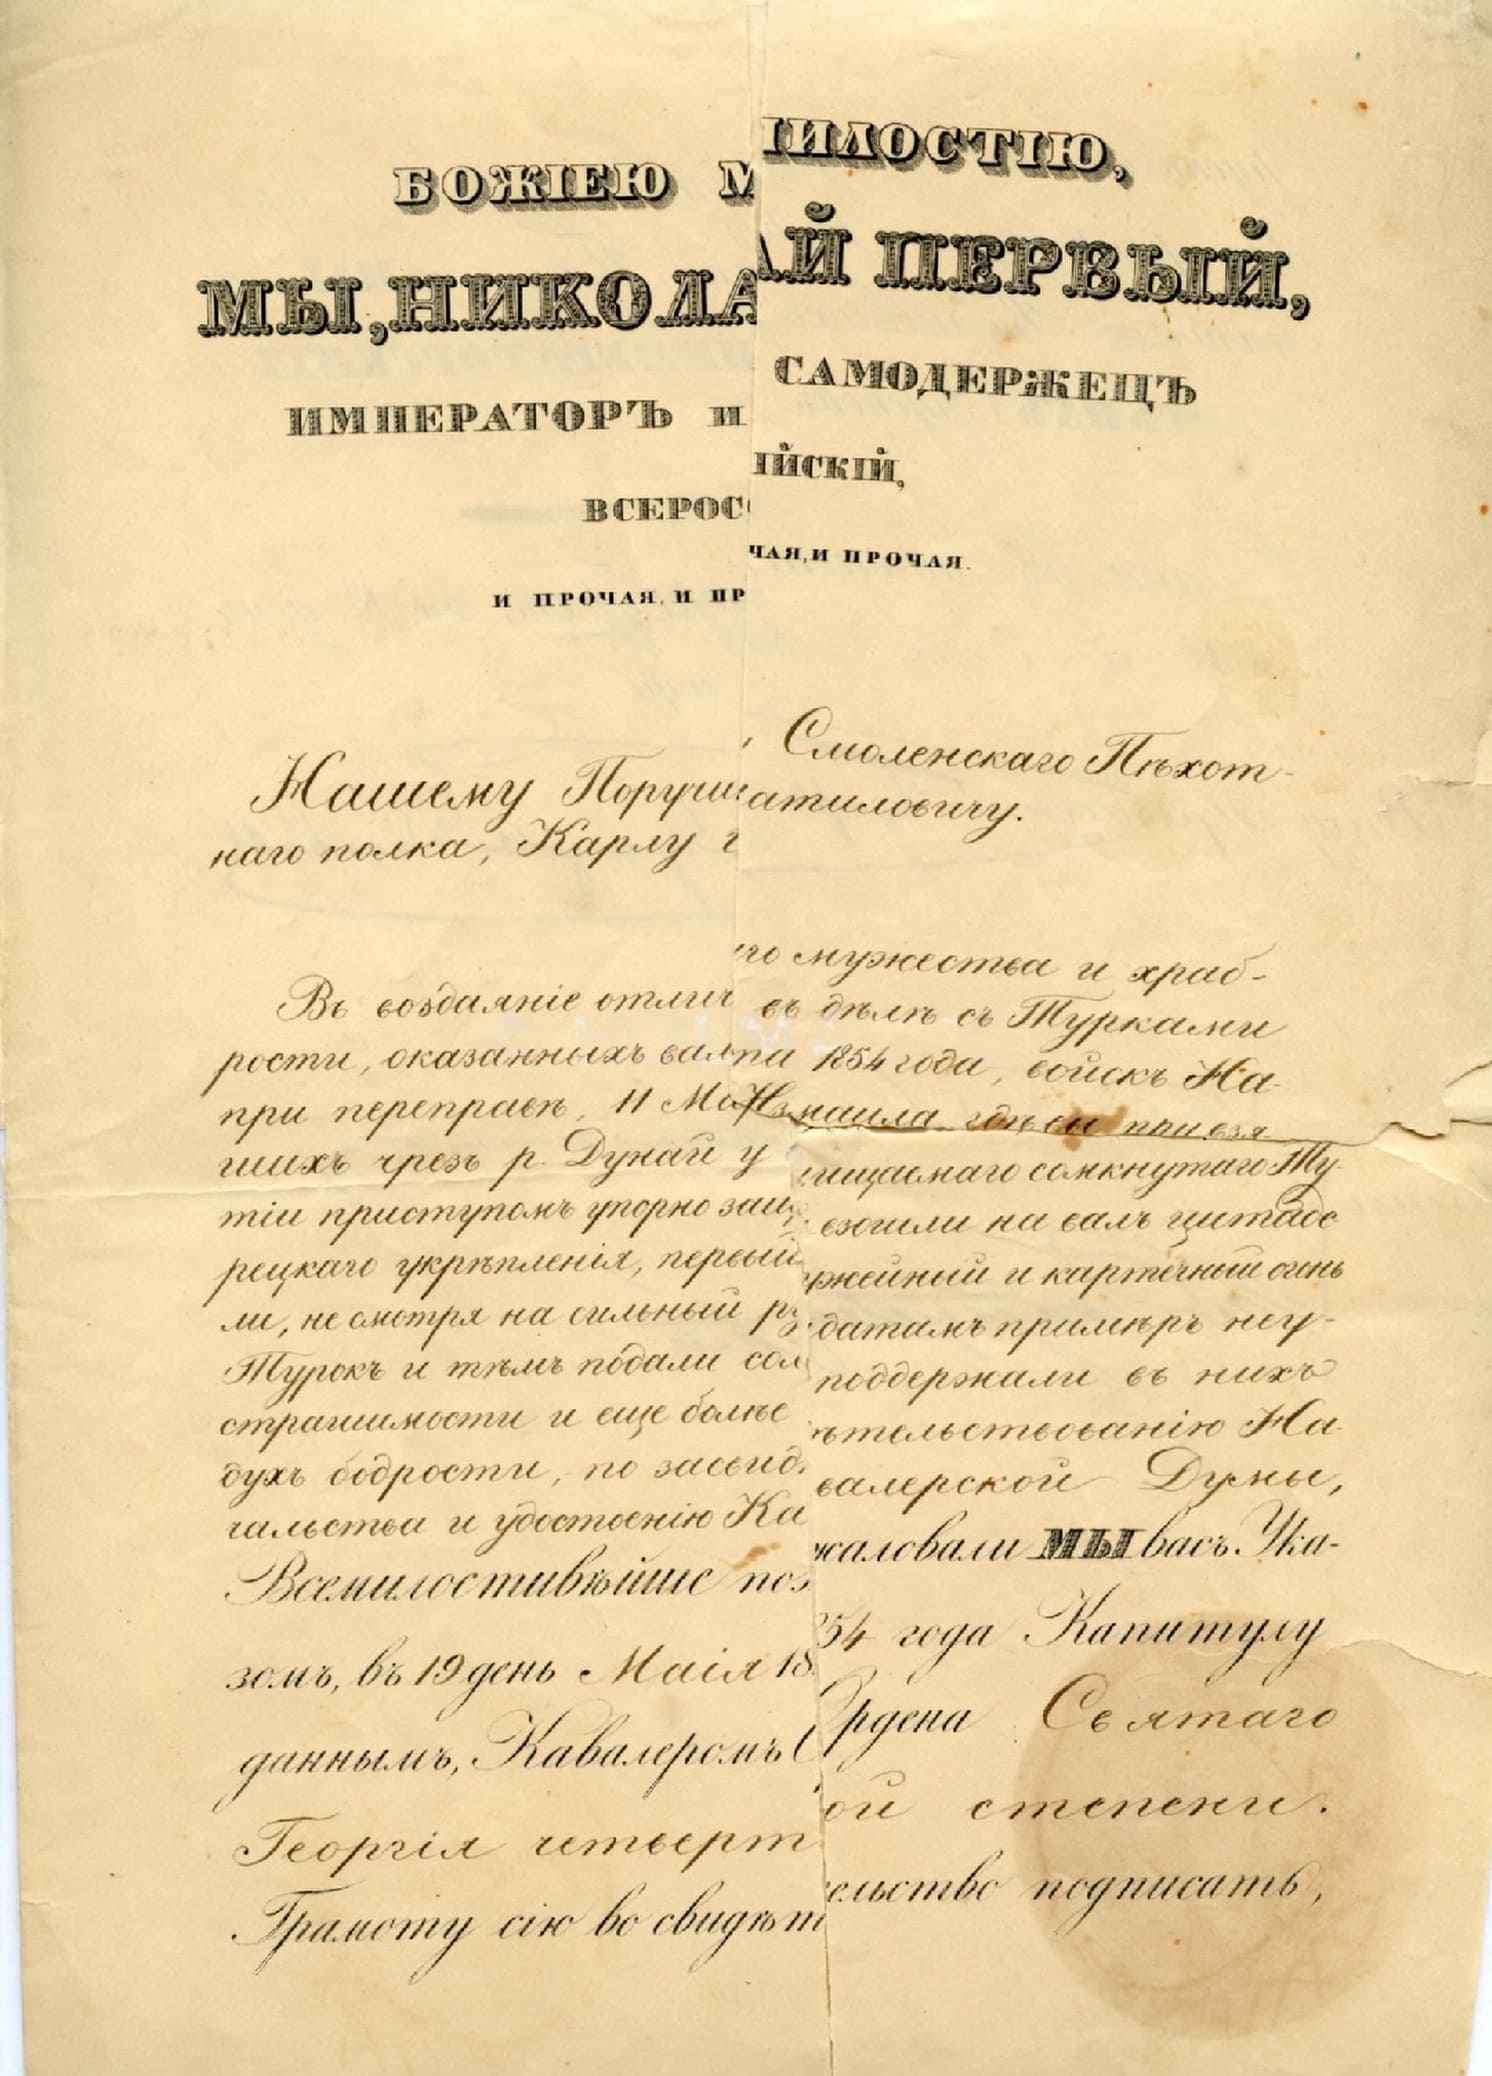 БОЖІЕЮ МИЛОСТІЮ,
МЫ, НИКОЛАЙ ПЕРВЫЙ,
ИМПЕРАТОРЪ И САМОДЕРЖЕЦЪ
ВСЕРОССІЙСКІЙ,
И ПРОЧАЯ, И ПРОЧАЯ, И ПРОЧАЯ.
Нашему Поручику, Смоленскаго Пѣхот-
наго полка, Карлу Гатиловичу.
Въ воздаяніе отличнаго мужества и храб-
рости, оказанныхъ вами въ дѣлѣ съ Турками
при переправѣ, 11 Марта 1854 года, войскъ На-
шихъ чрезъ р. Дунай у Измаила гдѣ вы при взя-
тіи приступомъ упорно защищаемаго сомкнутаго Ту-
рецкаго укрѣпленія, первый взошли на валъ цитаде
ли, не смотря на сильный ружейный и картечный огонь
Турокъ и тѣмъ подали солдатамъ примѣръ неу-
страшимости и еще болѣе поддержали въ нихъ
духъ бодрости, по засвидѣтельствованію На-
чальства и удостоенію Кавалерской Думы,
Всемилостивѣйше пожаловали МЫ васъ Ука-
зомъ, въ 19 день Маія 1854 года Капитулу
даннымъ, Кавалеромъ Ордена Святаго
Георгія четвертой степени.
Грамоту сію во свидѣтельство подписать,